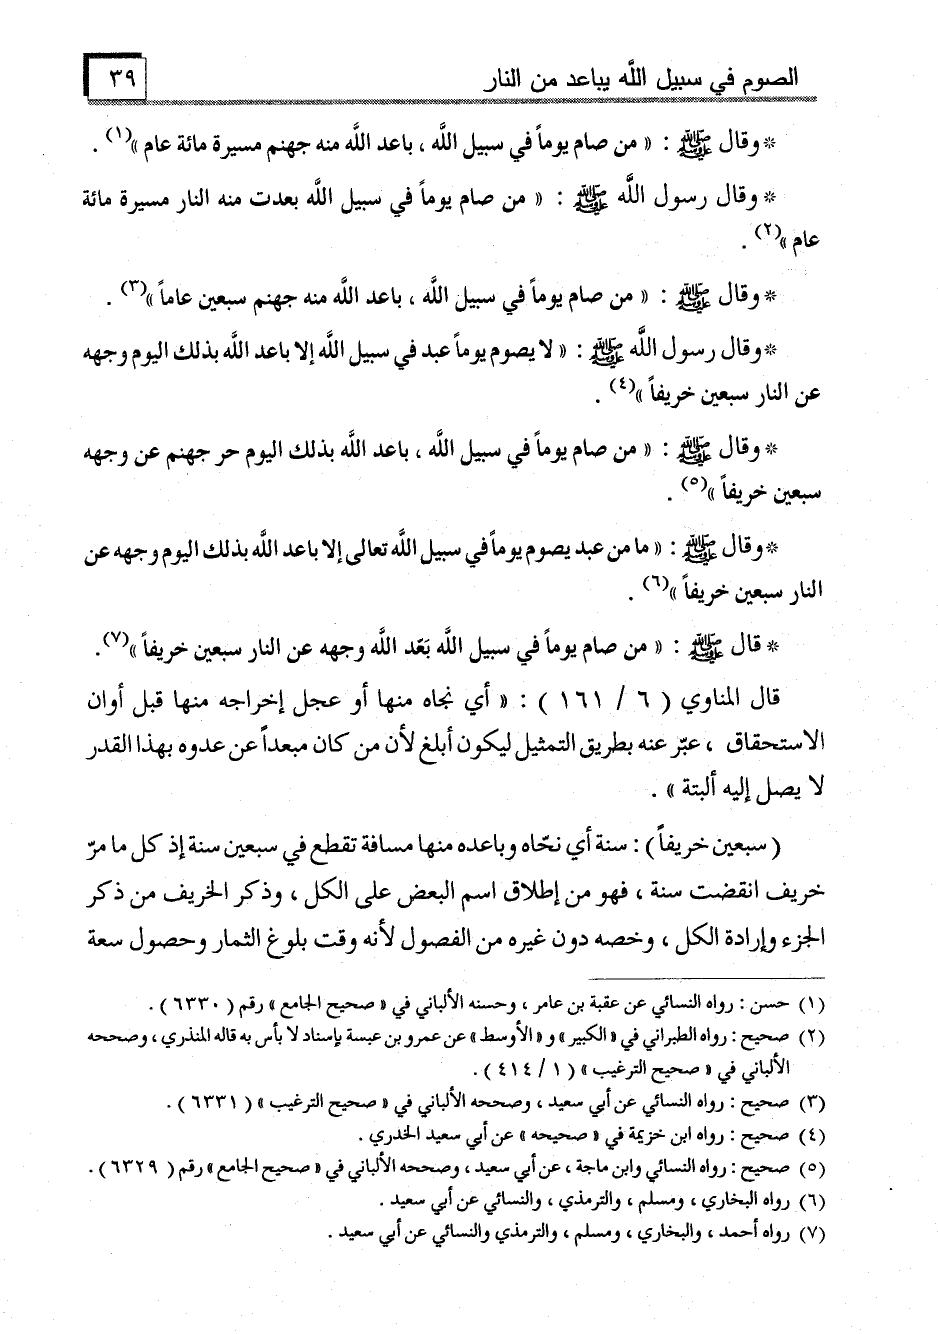 الصوم في سبيل اللَّه يباعد من النار
٣٩
* وقال ﷺ : « من صام يوماً في سبيل اللَّه ، باعد اللَّه منه جهنم مسيرة مائة عام »(١) .
* وقال رسول اللَّه ﷺ : « من صام يوماً في سبيل اللَّه بعدت منه النار مسيرة مائة
عام »(٢) .
* وقال ﷺ : « من صام يوماً في سبيل اللَّه ، باعد اللَّه منه جهنم سبعين عاماً »(٣) .
* وقال رسول اللَّه ﷺ : « لا يصوم يوماً عبد في سبيل اللَّه إلا باعد اللَّه بذلك اليوم وجهه
عن النار سبعين خريفاً »(٤) .
* وقال ﷺ : « من صام يوماً في سبيل اللَّه ، باعد اللَّه بذلك اليوم حر جهنم عن وجهه
سبعين خريفاً »(٥) .
* وقال ﷺ : « ما من عبد يصوم يوماً في سبيل اللَّه تعالى إلا باعد اللَّه بذلك اليوم وجهه عن
النار سبعين خريفاً »(٦) .
* قال ﷺ : « من صام يوماً في سبيل اللَّه بَعّد اللَّه وجهه عن النار سبعين خريفاً »(٧).
قال المناوي ( ٦ / ١٦١ ) : « أي نجاه منها أو عجل إخراجه منها قبل أوان
الاستحقاق ، عبّر عنه بطريق التمثيل ليكون أبلغ لأن من كان مبعداً عن عدوه بهذا القدر
لا يصل إليه ألبتة » .
( سبعين خريفاً ) : سنة أي نحّاه وباعده منها مسافة تقطع في سبعين سنة إذ كل ما مرّ
خريف انقضت سنة ، فهو من إطلاق اسم البعض على الكل ، وذكر الخريف من ذكر
الجزء وإرادة الكل ، وخصه دون غيره من الفصول لأنه وقت بلوغ الثمار وحصول سعة
(١) حسن : رواه النسائي عن عقبة بن عامر ، وحسنه الألباني في « صحيح الجامع » رقم ( ٦٣٣٠ ) .
(٢) صحيح : رواه الطبراني في « الكبير » و « الأوسط » عن عمرو بن عبسة بإسناد لا بأس به قاله المنذري ، وصححه
الألباني في « صحيح الترغيب » ( ١ / ٤١٤ ) .
(٣) صحيح : رواه النسائي عن أبي سعيد ، وصححه الألباني في « صحيح الترغيب » ( ٦٣٣١ ) .
(٤) صحيح : رواه ابن خزيمة في « صحيحه » عن أبي سعيد الخدري .
(٥) صحيح : رواه النسائي وابن ماجة ، عن أبي سعيد ، وصححه الألباني في « صحيح الجامع » رقم ( ٦٣٢٩ ) .
(٦) رواه البخاري ، ومسلم ، والترمذي ، والنسائي عن أبي سعيد .
(٧) رواه أحمد ، والبخاري ، ومسلم ، والترمذي والنسائي عن أبي سعيد .